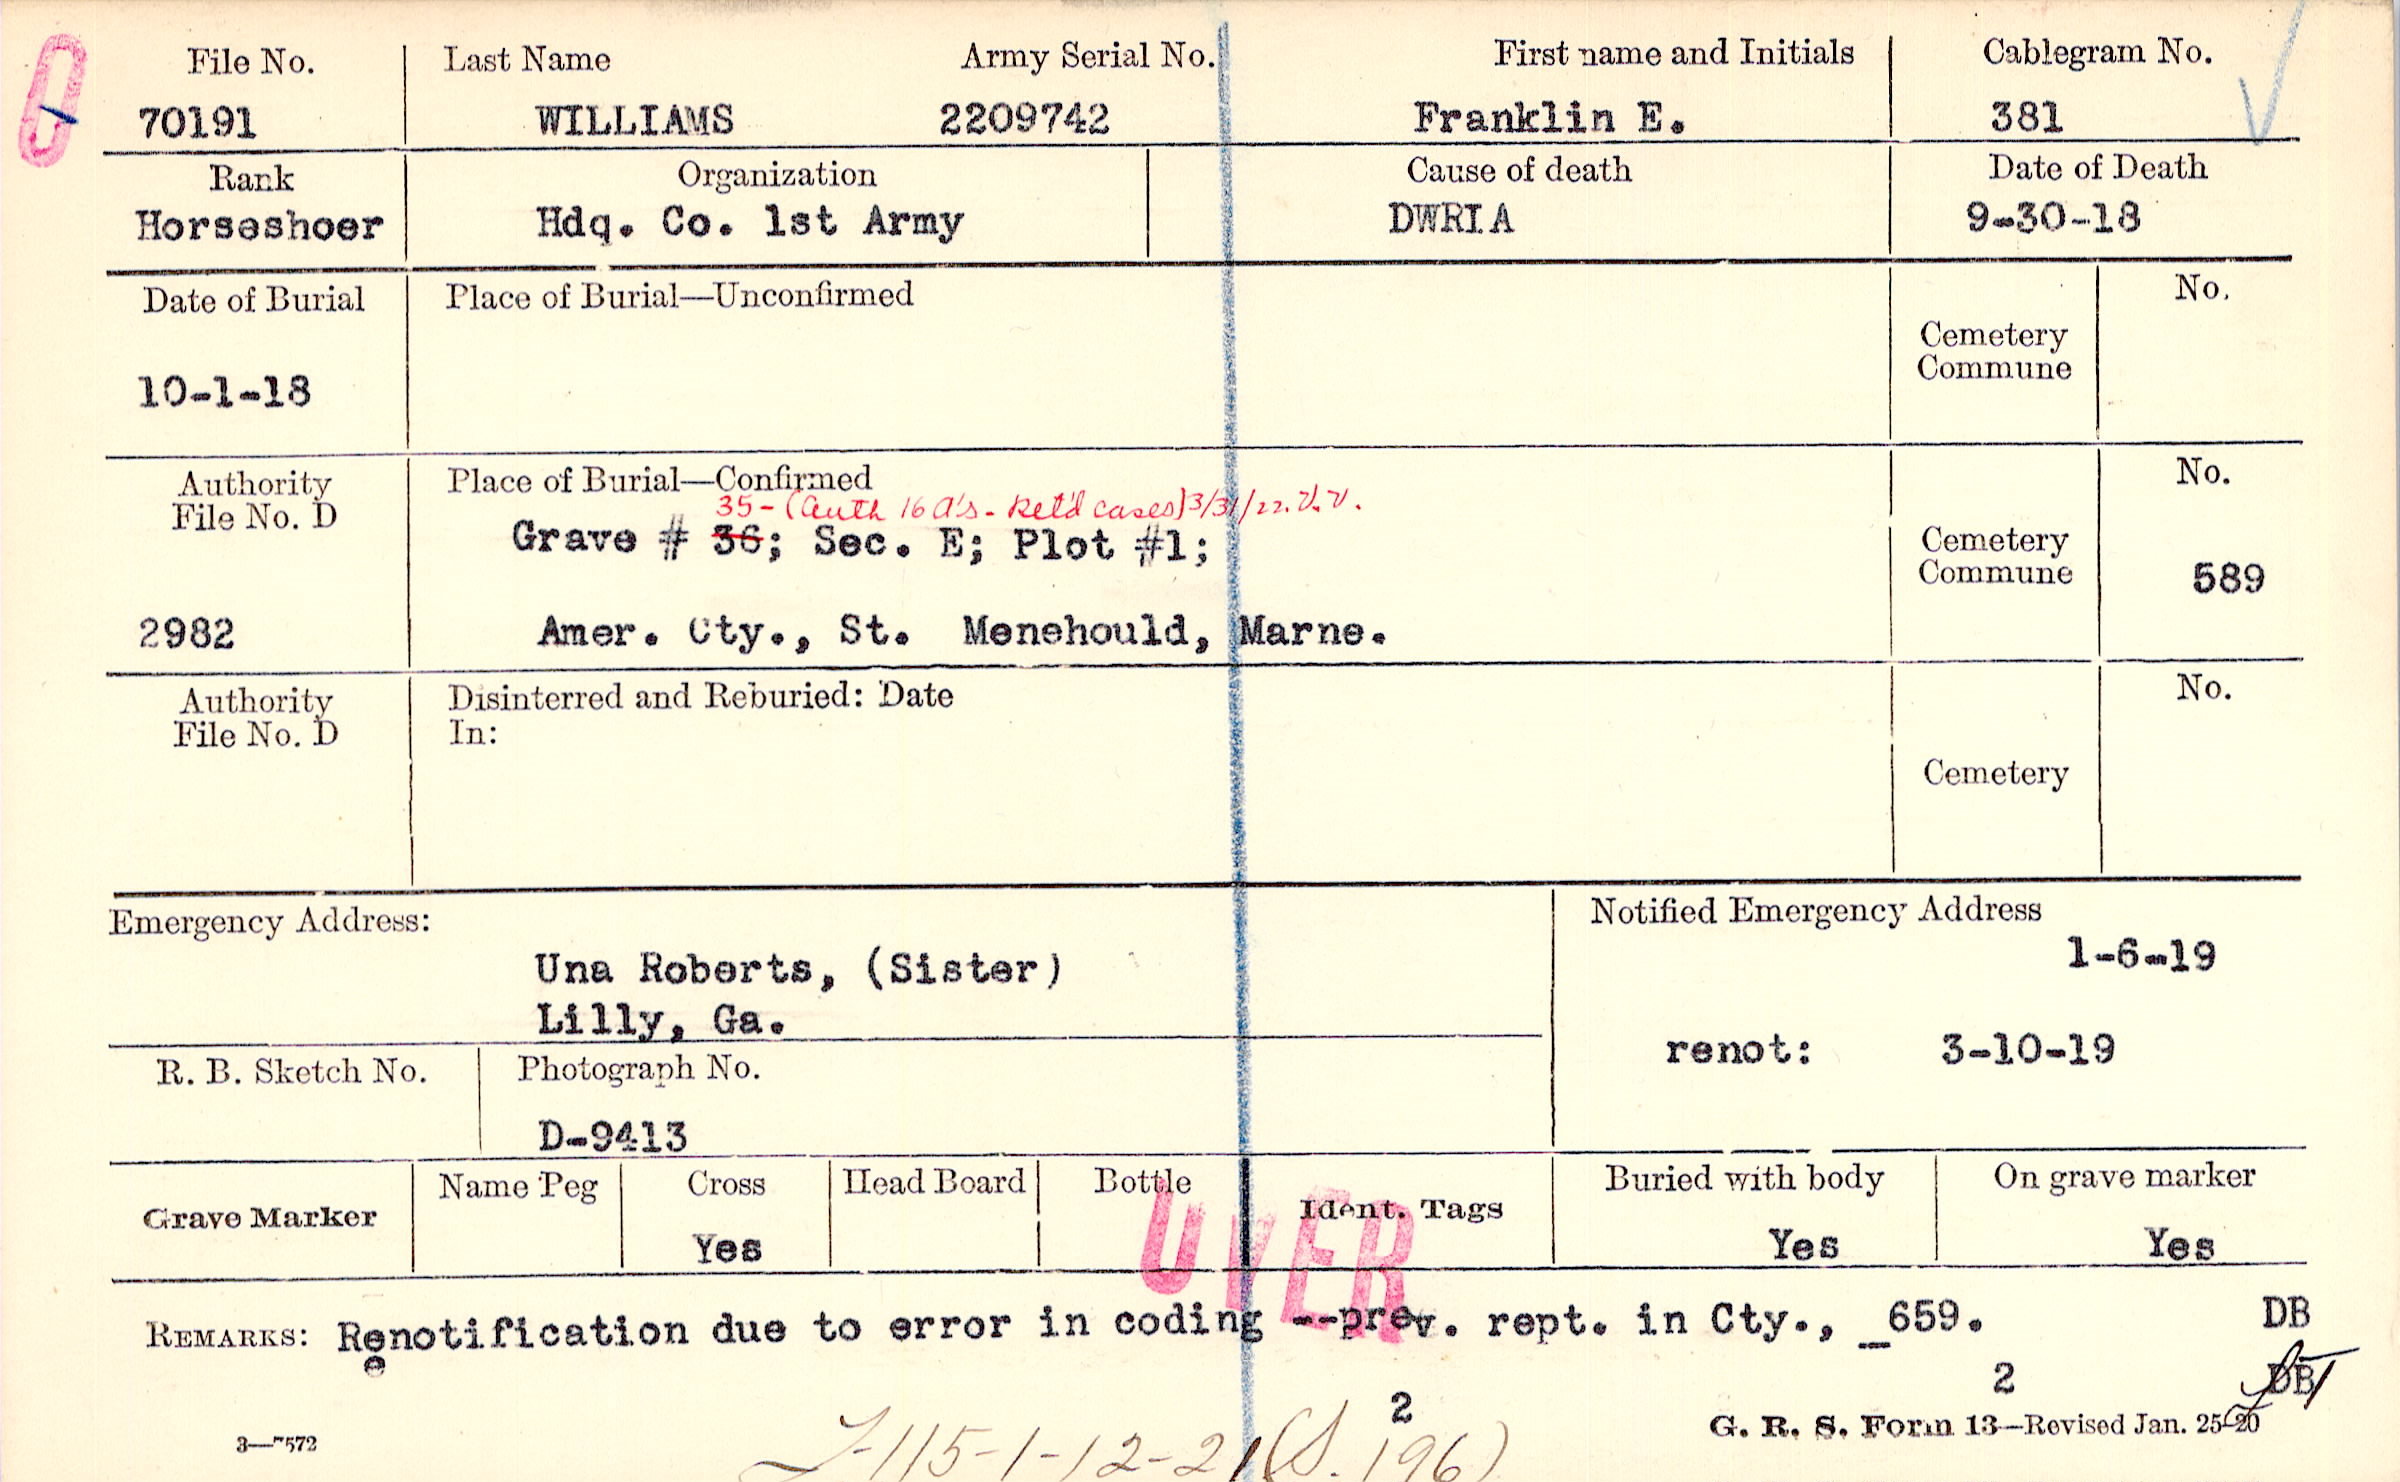 File No. Last Name Army Serial No. First name and Initials Cablegram No.
70191 WILLIAMS 2209742 Franklin E. 381
Rank Organization Cause of death Date of Death
Horseshoer Hdq. Co. 1st Army DWRIA 9-30-18
Date of Burial Place of Burial—Unconfirmed No.
Cemetery
Commune
10-1-18
Authority Place of Burial—Confirmed No.
File No. D
35-(Auth 16 A's - Ret'd cases) 3/31/22. V.V.
Grave # 36; Sec. E; Plot #1; Cemetery
Commune 589
2982 Amer. Cty., St. Menehould, Marne.
Authority Disinterred and Reburied: Date No.
File No. D In:
Cemetery
Emergency Address: Notified Emergency Address
Una Roberts, (Sister) 1-6-19
Lilly, Ga.
renot: 3-10-19
R. B. Sketch No. Photograph No.
D-9413
Grave Marker Name Peg Cross Head Board Bottle Ident. Tags Buried with body On grave marker
Yes Yes Yes
OVER
REMARKS: Renotification due to error in coding --prev. rept. in Cty., _659. DB
e
2 DB
2
3—7572 G. R. S. Form 13—Revised Jan. 25-20
115-1-12-21 (S. 196)